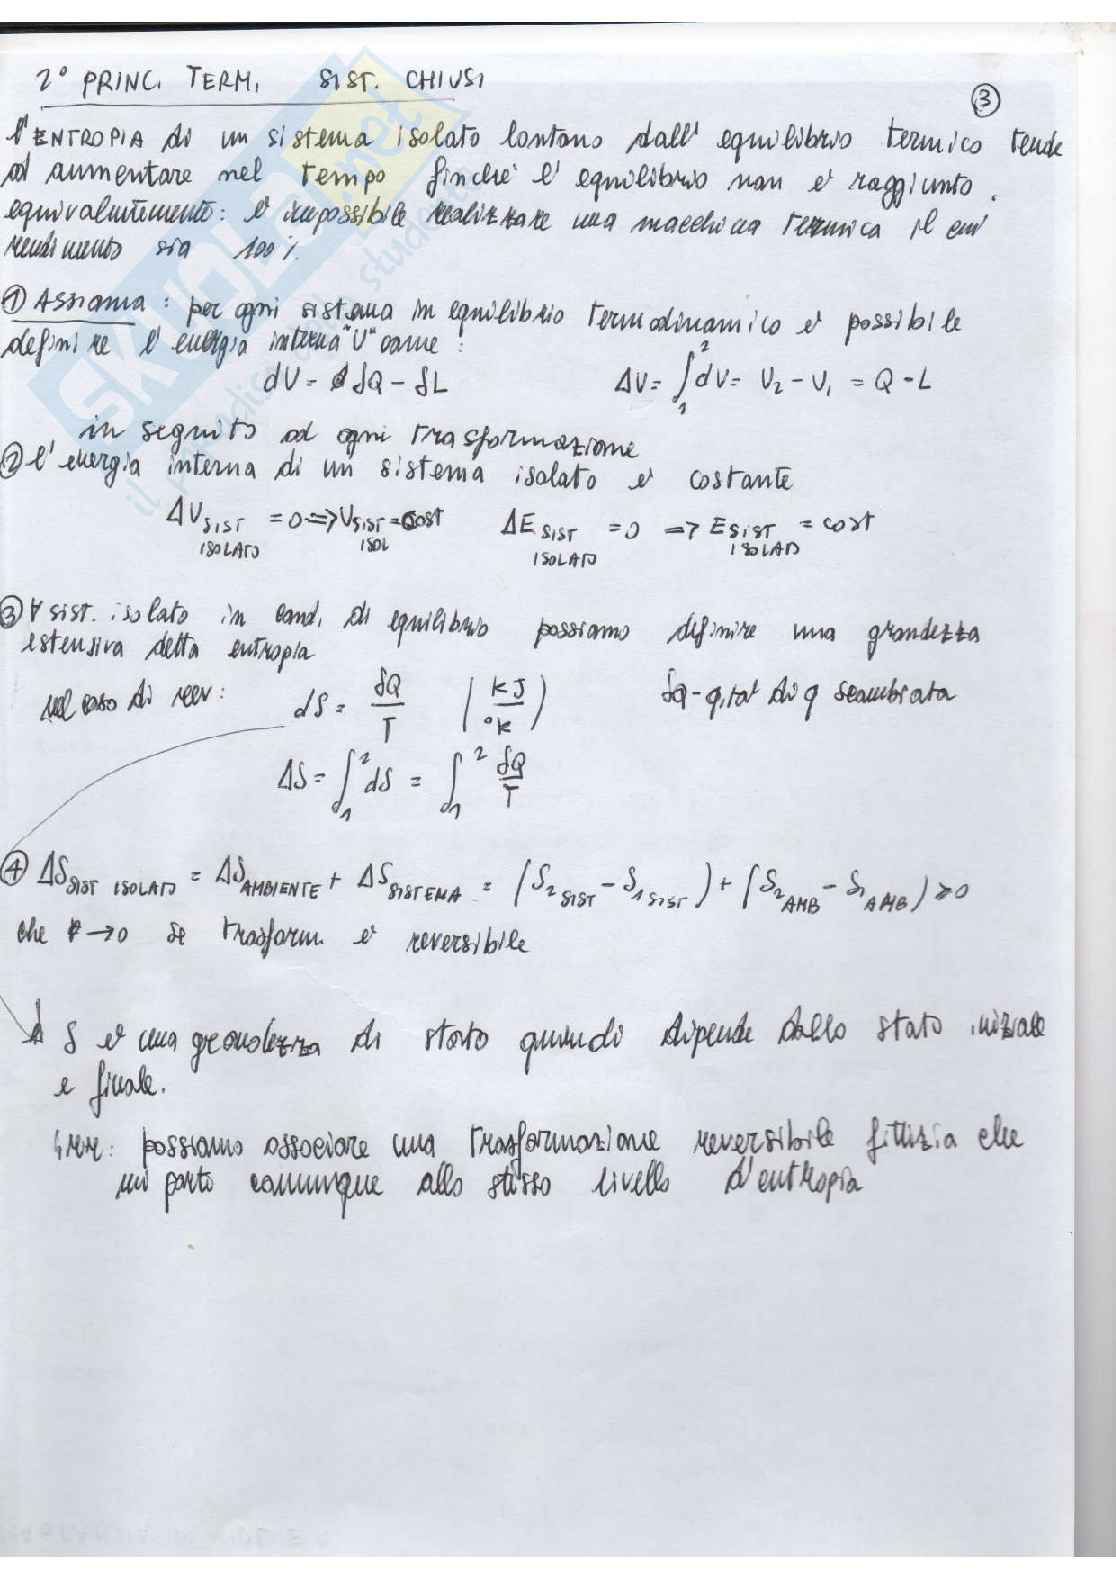 2° PRINC. TERM. SIST. CHIUSI
3
L'ENTROPIA di un sistema isolato lontano dall'equilibrio termico tende
ad aumentare nel tempo finché l'equilibrio non è raggiunto.
equivalentemente: è impossibile realizzare una macchina termica il cui
rendimento sia 100%.
① Assioma: per ogni sistema in equilibrio termodinamico è possibile
definire l'energia interna "U" come:
dU = δQ - δL ΔU = ∫₁² dU = U₂ - U₁ = Q - L
in seguito ad ogni trasformazione
② l'energia interna di un sistema isolato è costante
ΔU SIST ISOLATO = 0 => U SIST ISOL = cost ΔE SIST ISOLATO = 0 => E SIST ISOLATO = cost
③ ∀ sist. isolato in cond. di equilibrio possiamo definire una grandezza
estensiva detta entropia
nel caso di rev: dS = δQ/T (kJ/°K) δq - q.tà di q scambiata
ΔS = ∫₁² dS = ∫₁² δQ/T
④ ΔS SIST ISOLATO = ΔS AMBIENTE + ΔS SISTEMA = (S₂ SIST - S₁ SIST) + (S₂ AMB - S₁ AMB) ≥ 0
che → 0 se trasform. è reversibile
S è una grandezza di stato quindi dipende dallo stato iniziale
e finale.
irr: possiamo associare una trasformazione reversibile fittizia che
mi porta comunque allo stesso livello d'entropia
SKUOLA.net
il paradiso dello studente